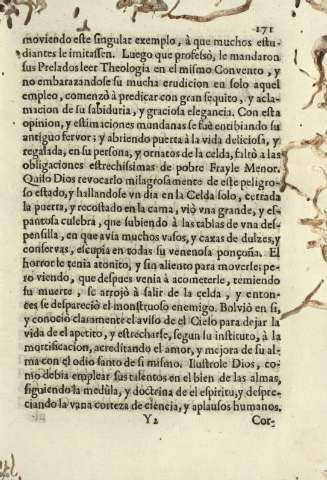 171
moviendo este singular exemplo, à que muchos estu-
diantes le imitassen. Luego que professò, le mandaron
sus Prelados leer Theologia en el mismo Convento, y
no embarazandose su mucha erudicion en solo aquel
empleo, comenzò à predicar con gran sequito, y acla-
macion de su sabiduria, y graciosa elegancia. Con esta
opinion, y estimaciones mundanas se fuè entibiando su
antiguo fervor; y abriendo puerta à la vida deliciosa, y
regalada, en su persona, y ornatos de la celda, faltò à las
obligaciones estrechissimas de pobre Frayle Menor.
Quiso Dios revocarlo milagrosamente de este peligro-
so estado, y hallandose vn dia en la Celda solo, cerrada
la puerta, y recostado en la cama, viò vna grande, y es-
pantosa culebra, que subiendo à las tablas de vna des-
pensilla, en que avia muchos vasos, y caxas de dulzes, y
conservas, escupia en todas su venenosa ponçoña. El
horror le tenia atonito, y sin aliento para moverse; pe-
ro viendo, que despues venia à acometerle, temiendo
su muerte, se arrojò à salir de la celda, y enton-
ces se despareciò el monstruoso enemigo. Bolviò en si,
y conociò claramente el aviso de el Cielo para dejar la
vida de el apetito, y estrecharse, segun su instituto, à la
mortificacion, acreditando el amor, y mejora de su al-
ma con el odio santo de si mismo. Ilustrole Dios, co-
mo debia emplear sus talentos en el bien de las almas,
siguiendo la medùla, y doctrina de el espiritu, y despre-
ciando la vana corteza de ciencia, y aplausos humanos.
Y2 Cor-